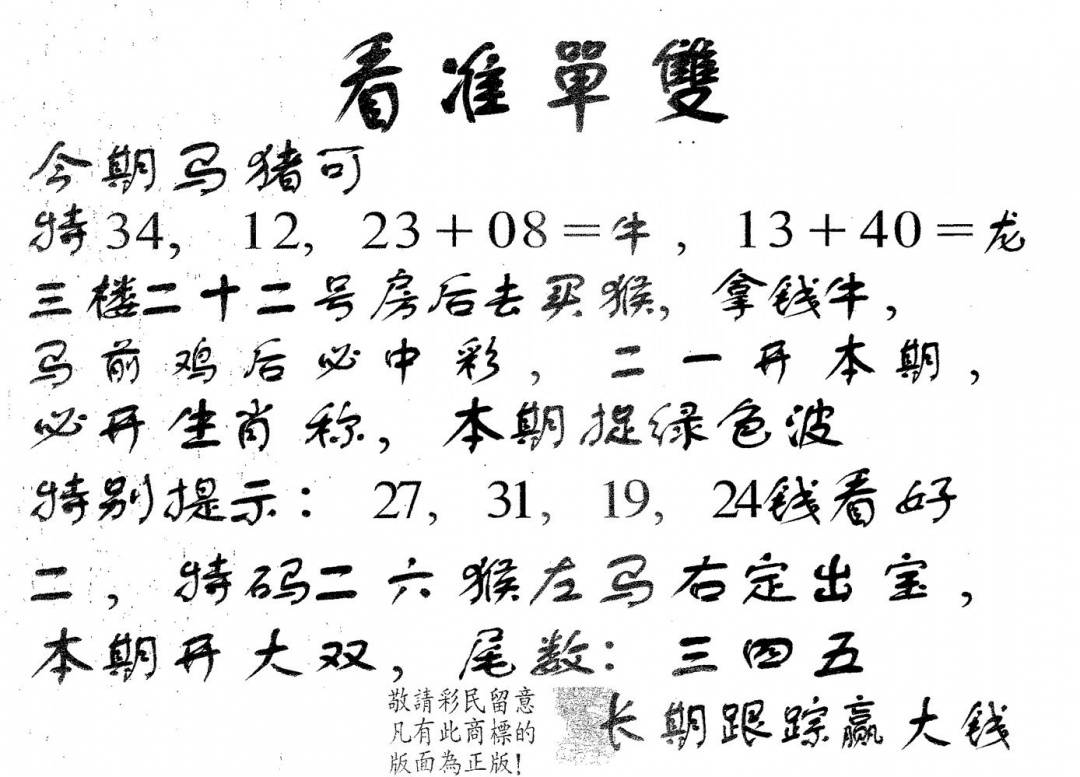 看准單雙
今期马猪可
特34, 12, 23+08=牛, 13+40=龙
三楼二十二号房后去买猴, 拿钱牛,
马前鸡后必中彩, 二一开本期,
必开生肖称, 本期捉绿色波
特别提示: 27, 31, 19, 24钱看好
二, 特码二六猴左马右定出宝,
本期开大双, 尾数: 三四五
敬請彩民留意
凡有此商標的
版面為正版!
长期跟踪赢大钱